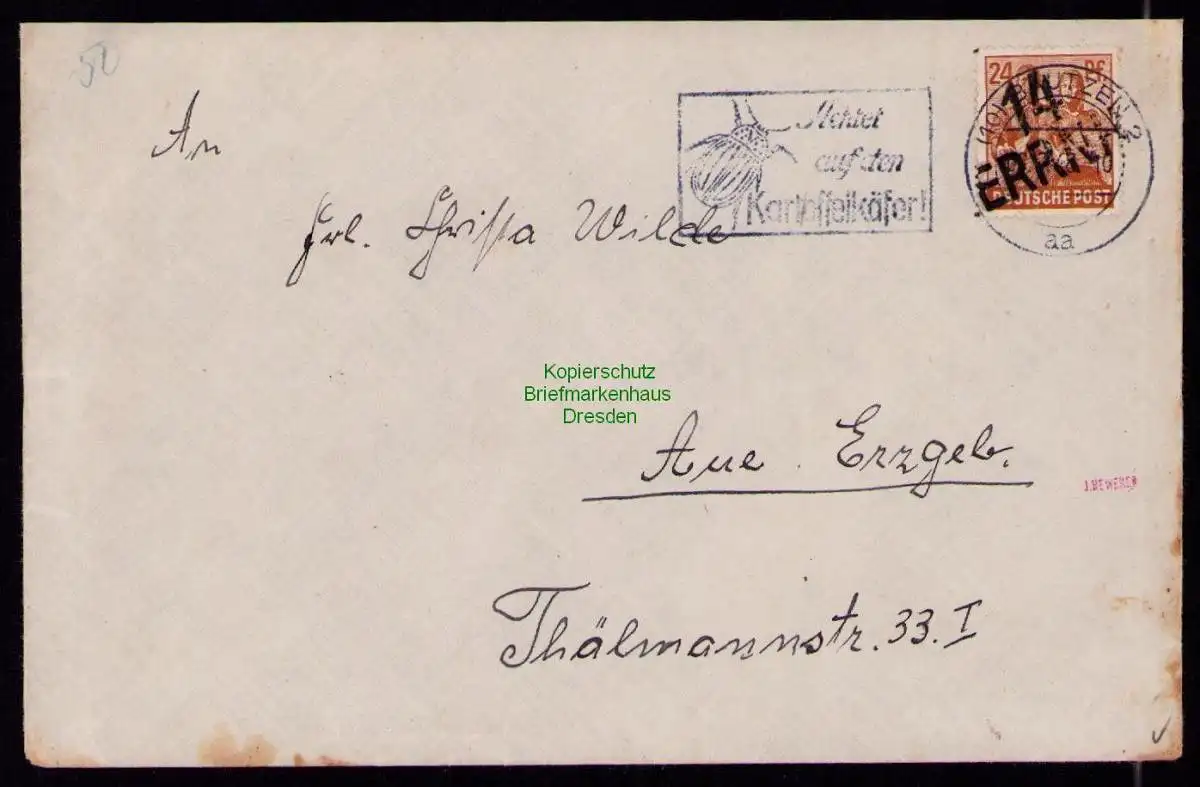 50
An
Frl. Christa Wilde
Achtet
auf den
Kartoffelkäfer!
24 Pf
14
ERRNH
DEUTSCHE POST
(10) BAUTZEN 2
aa
Kopierschutz
Briefmarkenhaus
Dresden
Aue Erzgeb.
Thälmannstr. 33. I